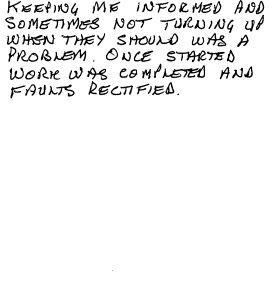 KEEPING ME INFORMED AND
SOMETIMES NOT TURNING UP
WHEN THEY SHOULD WAS A
PROBLEM. ONCE STARTED
WORK WAS COMPLETED AND
FAULTS RECTIFIED.